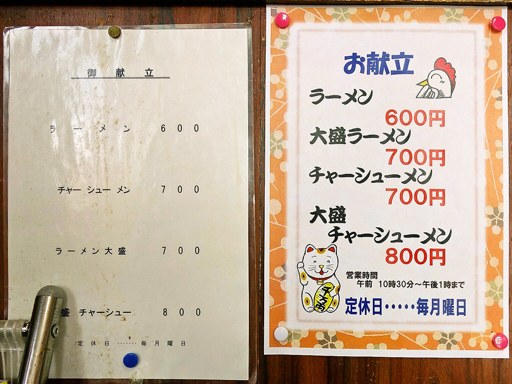 御献立
ラーメン 600
チャーシューメン 700
ラーメン大盛 700
盛 チャーシュー 800
定休日……毎月曜日
お献立
ラーメン
600円
大盛ラーメン
700円
チャーシューメン
700円
大盛
チャーシューメン
800円
営業時間
午前 10時30分～午後1時まで
定休日・・・・・毎月曜日